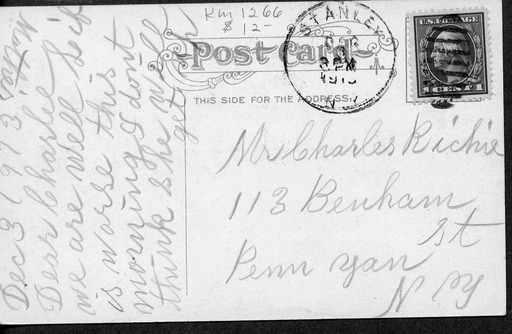 RM 1266
$ 12-
Post Card
THIS SIDE FOR THE ADDRESS.
STANLEY
3 PM
1913
N.Y.
U.S. POSTAGE
1 CENT 1
Mr Charles Richie
113 Benham
St
Penn Yan
N Y
Dec 3 1913
Dear Charlie
we are well Lib
is worse this
morning I dont
think she will
get